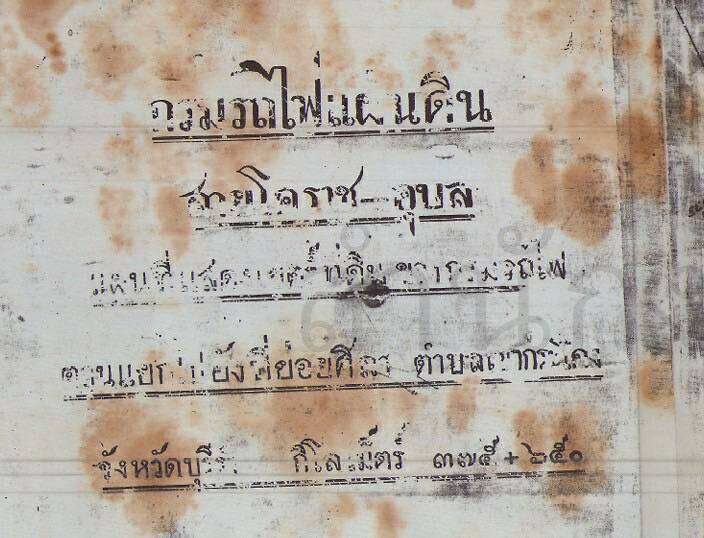 กรมรถไฟแผ่นดิน
สายโคราช-อุบล
แผนที่แสดงเขตร์ที่ดินของกรมรถไฟ
ตอนแยกไปยังที่ย่อยศิลา ตำบลเขากระโดง
จังหวัดบุรีรัมย์ กิโลเม็ตร์ ๓๗๕ + ๖๕๐